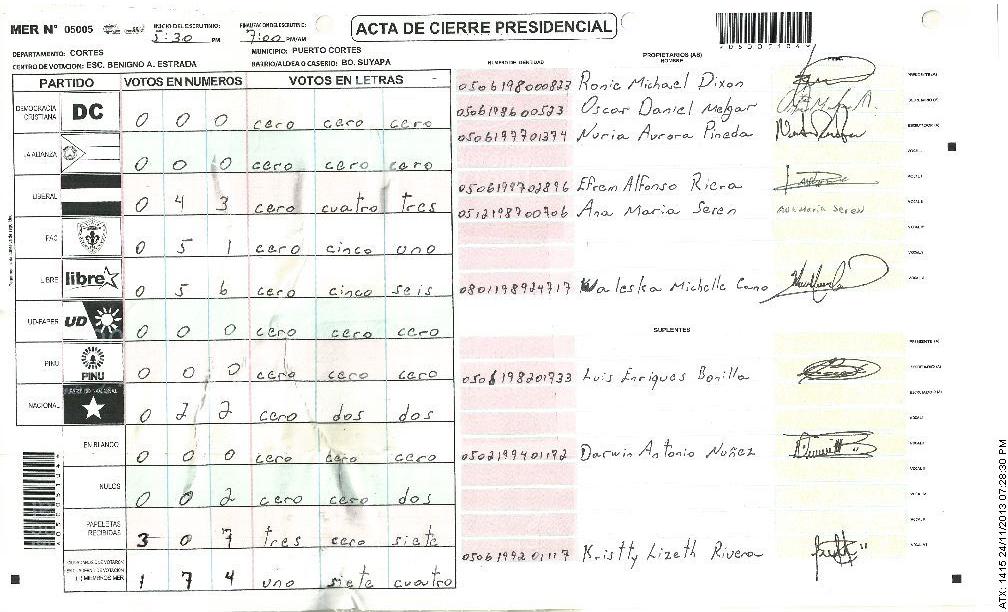 MER N° 05005
INICIO DEL ESCRUTINIO: 5:30 PM
FINALIZACION ESCRUTINIO: 7:00 PM/AM
ACTA DE CIERRE PRESIDENCIAL
DEPARTAMENTO: CORTES
MUNICIPIO: PUERTO CORTES
CENTRO DE VOTACION: ESC. BENIGNO A. ESTRADA
BARRIO/ALDEA O CASERIO: BO. SUYAPA
PARTIDO VOTOS EN NUMEROS VOTOS EN LETRAS
DEMOCRACIA CRISTIANA DC 0 0 0 cero cero cero
LA ALIANZA 0 0 0 cero cero cero
LIBERAL 0 4 3 cero cuatro tres
PAC 0 5 1 cero cinco uno
LIBRE libre 0 5 6 cero cinco seis
UD-FAPER UD 0 0 0 cero cero cero
PINU PINU 0 0 0 cero cero cero
NACIONAL 0 2 2 cero dos dos
EN BLANCO 0 0 0 cero cero cero
NULOS 0 0 2 cero cero dos
PAPELETAS RECIBIDAS 3 0 7 tres cero siete
1 7 4 uno siete cuatro
NUMERO DE IDENTIDAD
PROPIETARIOS (AS)
NOMBRE
0506198000823 Ronie Michael Dixon
0506198600523 Oscar Daniel Melgar
0506197701374 Nuria Aurora Pineda
0506199702896 Efrem Alfonso Riera
0512198700706 Ana Maria Seren Ana Maria Seren
0801198924717 Waleska Michelle Cano
SUPLENTES
0506198201733 Luis Enriques Bonilla
0502199401192 Darwin Antonio Nuñez
0506199201117 Kristty Lizeth Rivera
ATX: 1415 24/11/2013 07:28:30 PM